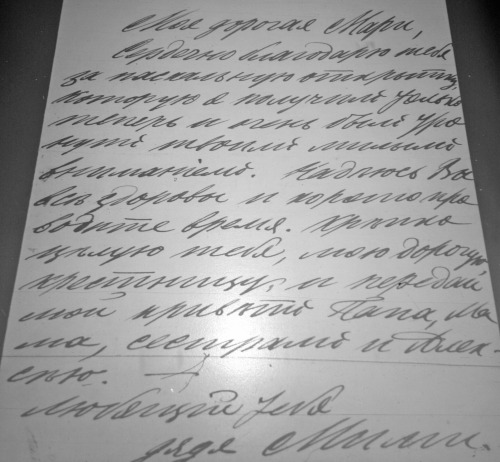 Моя дорогая Мари,
Сердечно благодарю тебя
за пасхальную открытку,
которую я получил только
теперь и очень был тро
нут твоим милым
вниманием. Надеюсь Вы
все здоровы и хорошо про
водите время. Крепко
целую тебя, мою дорогую
крестницу, и передай
мой привет Папа, Ма
ма, сестрами и Алек-
сею.
Любящий тебя
дядя